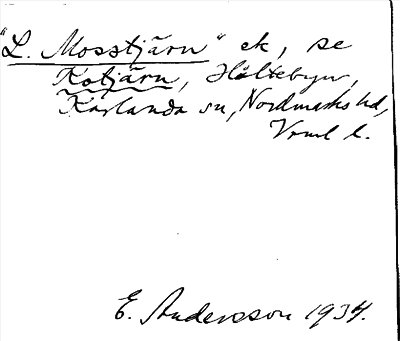 "L. Mosstjärn" ek, se
Kotjärn, Hältebyn,
Karlanda sn, Nordmarks hd,
Vrml l.
E. Andersson 1934.